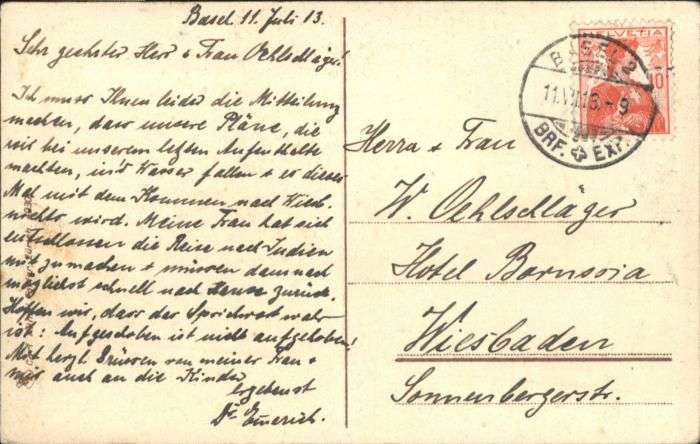 Basel 11. Juli 13.
Sehr geehrter Herr + Frau Oehlschläger!
Ich muss Ihnen leider die Mitteilung
machen, dass unsere Pläne, die
wir bei unserem letzten Aufenthalte
machten, in's Wasser fallen + es dieses
Mal mit dem Kommen nach Wiesb.
nichts wird. Meine Frau hat sich
entschlossen die Reise nach Indien
mitzumachen + müssen demnach
möglichst schnell nach Hause zurück.
Hoffen wir, dass das Sprichwort wahr
ist: Aufgeschoben ist nicht aufgehoben!
Mit herzl. Grüssen von meiner Frau +
mir auch an die Kinder
ergebenst
Dr Emerich.
HELVETIA
10
BASEL 2
11.VII.13.-9
BRF. EXP.
Herrn + Frau
W. Oehlschläger
Hotel Borussia
Wiesbaden
Sonnenbergerstr.